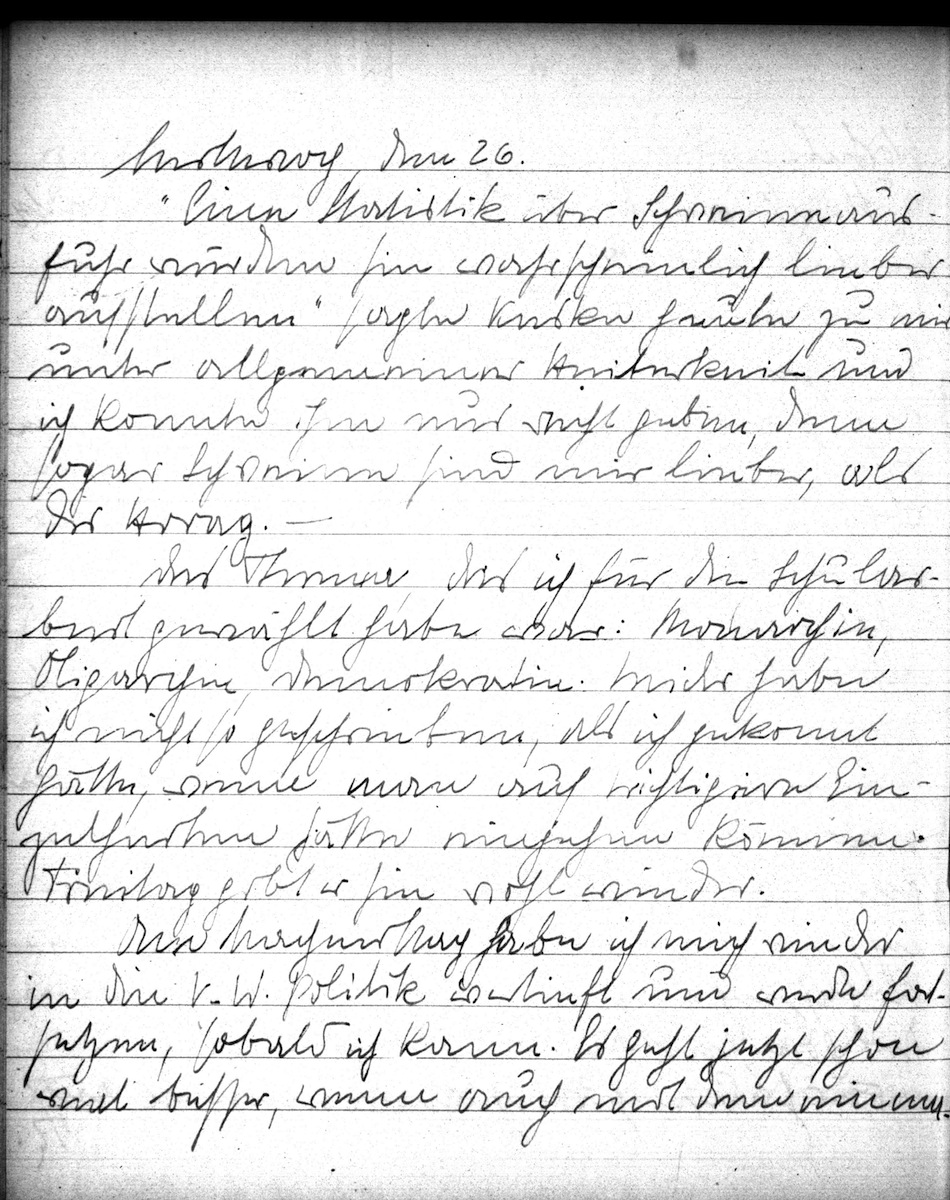 Mittwoch, den 26.
"Eine Statistik über Schweineaus-
fuhr würden Sie wahrscheinlich lieber
aufstellen" sagte heute zu mir
unter allgemeiner Heiterkeit und
ich konnte ihm nur recht geben, denn
sogar Schweine sind mir lieber, als
der Horaz. —
Das Thema, das ich für die Schular-
beit gewählt habe war: Monarchie,
Oligarchie, Demokratie. Leider habe
ich nicht so geschrieben, als ich gekonnt
hätte, wenn man auf wichtigere Ein-
zelheiten hätte eingehen können.
Freitag gibt er sie wohl wieder.
Den Nachmittag habe ich mich wieder
in die V.W. Politik vertieft und werde fort-
setzen, sobald ich kann. Es geht jetzt schon
viel besser, wenn auch mit dem